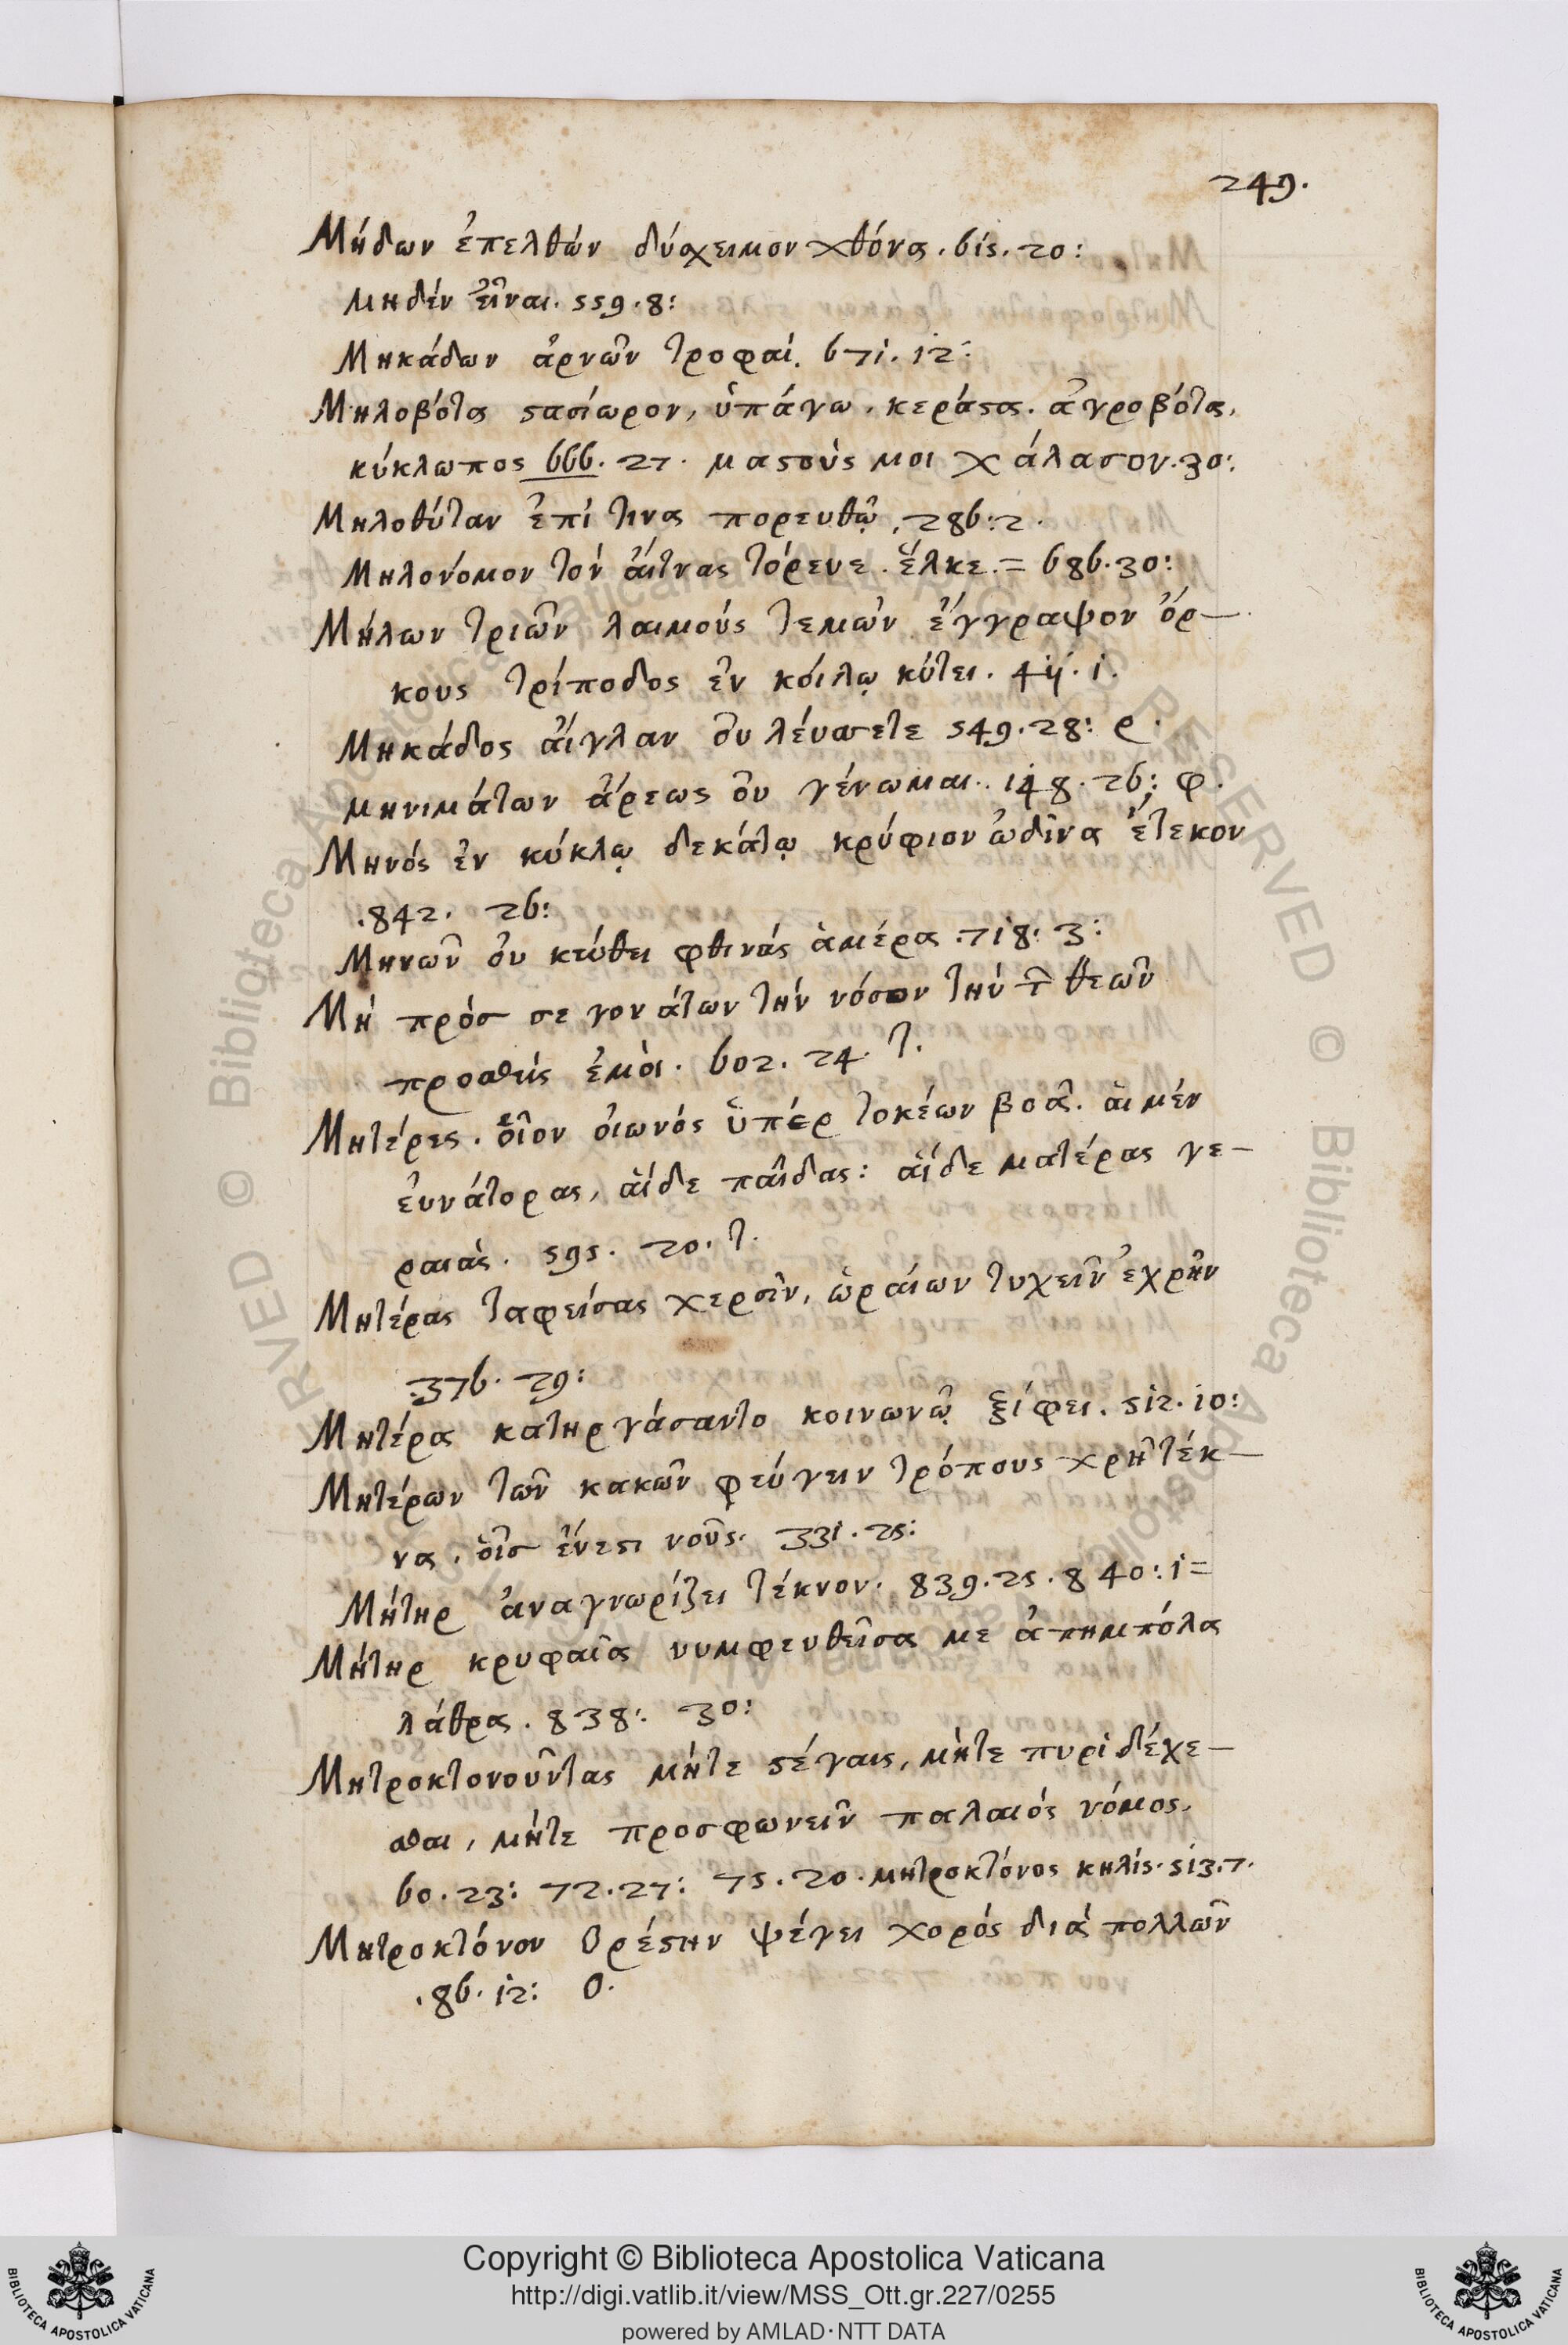 249.
Μήδων ἐπελθών δύσχειμον χθόνα. 615. 20:
μηδέν εἶναι. 559. 8:
Μηκάδων ἀρνῶν τροφαί. 671. 12:
Μηλοβότα ϛασίωρον, ὑπάγω, κεράϛα. ἀγροβότα,
κύκλωπος 666. 27. μαϛούς μοι χάλασον. 30:
Μηλοθύταν ἐπί τινα πορευθῶ, 286: 2.
Μηλονόμον τόν ἄιτνας τόρευε. ἕλκε. = 686. 30:
Μήλων τριῶν λαιμούς τεμών ἔγγραψον ὅρ—
κους τρίποδος ἐν κόιλῳ κύτει. 411. 1.
Μηκάδος ἄιγλαν ὀυ λέυσετε 549. 28: ρ.
μηνιμάτων ἄρεως ὀυ γένωμαι. 148. 26: φ.
Μηνός ἐν κύκλῳ δεκάτῳ κρύφιον ὠδῖνα ἔτεκον
.842. 26:
Μηνῶν ὀυ κεύθει φθινάς ἁμέρα. 718. 3:
Μή πρός σε γονάτων τήν νόσον τήν τ͂ θεῶν
προσθείς ἐμοί. 602. 24. τ.
Μητέρες. οἷον ὀιωνός ὑπέρ τοκέων βοᾶ. ἁι μέν
ἐυνάτορας, ἁίδε παῖδας: ἁίδε ματέρας γε—
ραιάς. 595. 20. τ.
Μητέρας ταφείσας χερσίν, ὡράιων τυχεῖν ἐχρῆν
.376. 29:
Μητέρα κατηργάσαντο κοινωνῷ ξίφει. 512. 10:
Μητέρων τῶν κακῶν φεύγειν τρόπους χρή τέκ—
να, οἷς ἔνεϛι νοῦς. 331. 25:
Μήτηρ ἀναγνωρίζει τέκνον. 839. 25. 840: 1=
Μήτηρ κρυφαῖα νυμφευθεῖσα με ἀπημπόλα
λάθρα. 838: 30:
Μητροκτονοῦντας μήτε ϛέγαις, μήτε πυρί δέχε—
σθαι, μήτε προσφωνεῖν παλαιός νόμος.
60. 23: 72. 27: 75. 20. μητροκτόνος κηλίς. 513. 7.
Μητροκτόνον Ορέϛην ψέγει χορός διά πολλῶν
.86. 12: Ο.
Copyright © Biblioteca Apostolica Vaticana
http://digi.vatlib.it/view/MSS_Ott.gr.227/0255
powered by AMLAD·NTT DATA